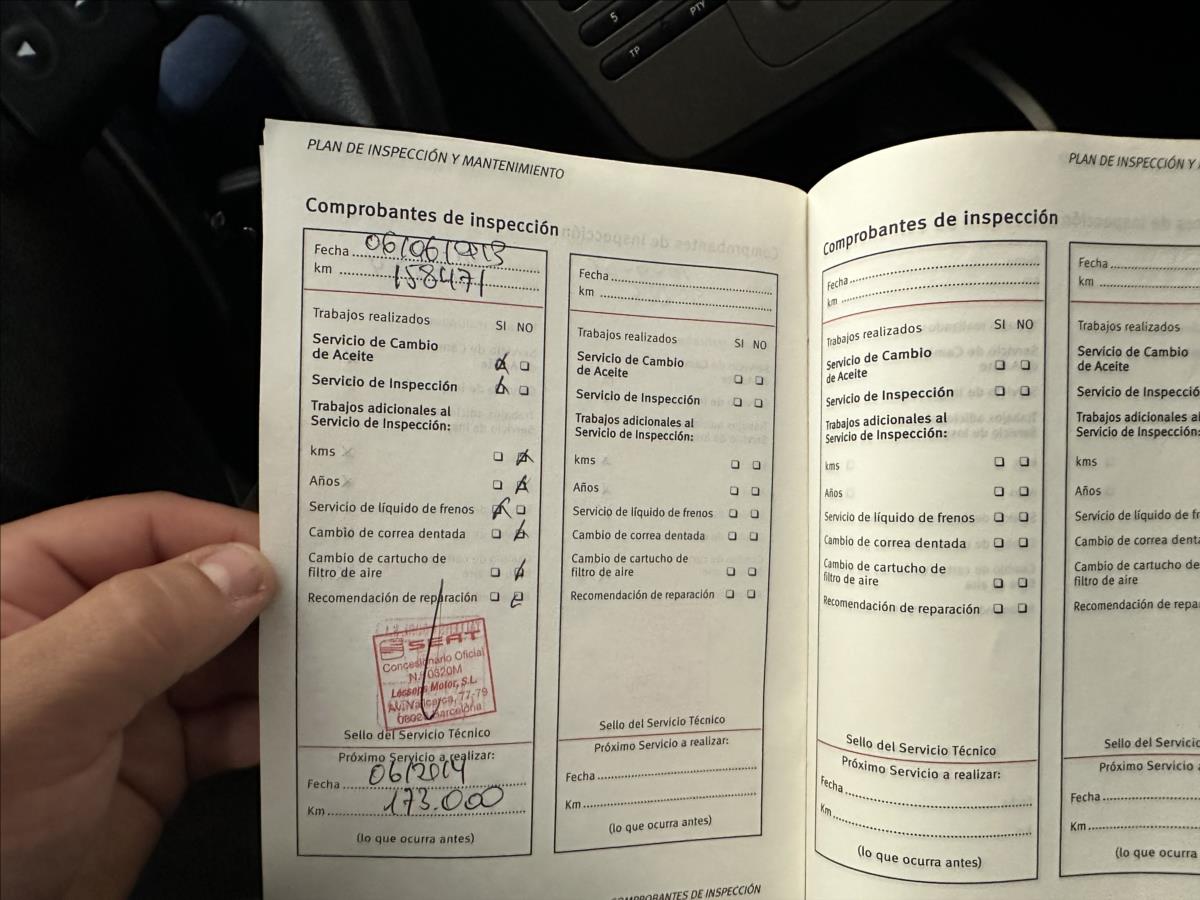 5
TP
PTY
PLAN DE INSPECCIÓN Y MANTENIMIENTO
Comprobantes de inspección
Fecha 06/06/2013
km 158471
Trabajos realizados SI NO
Servicio de Cambio
de Aceite
Servicio de Inspección
Trabajos adicionales al
Servicio de Inspección:
kms
Años
Servicio de líquido de frenos
Cambio de correa dentada
Cambio de cartucho de
filtro de aire
Recomendación de reparación
SEAT
Concesionario Oficial
N.º 0320M
Motor, S.L
77-79
Barcelona
Sello del Servicio Técnico
Próximo Servicio a realizar:
Fecha 06/2014
Km 173.000
(lo que ocurra antes)
Fecha
km
Trabajos realizados SI NO
Servicio de Cambio
de Aceite
Servicio de Inspección
Trabajos adicionales al
Servicio de Inspección:
kms
Años
Servicio de líquido de frenos
Cambio de correa dentada
Cambio de cartucho de
filtro de aire
Recomendación de reparación
Sello del Servicio Técnico
Próximo Servicio a realizar:
Fecha
Km
(lo que ocurra antes)
COMPROBANTES DE INSPECCIÓN
PLAN DE INSPECCIÓN Y
Comprobantes de inspección
Fecha
km
Trabajos realizados SI NO
Servicio de Cambio
de Aceite
Servicio de Inspección
Trabajos adicionales al
Servicio de Inspección:
kms
Años
Servicio de líquido de frenos
Cambio de correa dentada
Cambio de cartucho de
filtro de aire
Recomendación de reparación
Sello del Servicio Técnico
Próximo Servicio a realizar:
Fecha
Km
(lo que ocurra antes)
Fecha
km
Trabajos realizados
Servicio de Cambio
de Aceite
Servicio de Inspección
Trabajos adicionales al
Servicio de Inspección:
kms
Años
Servicio de líquido de fr
Cambio de correa denta
Cambio de cartucho de
filtro de aire
Recomendación de repa
Sello del Servicio
Próximo Servicio a rea
Fecha
Km
(lo que ocurra